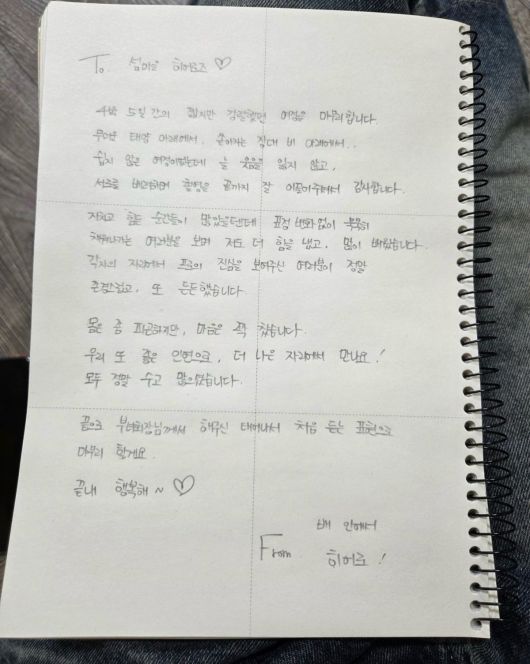 To. 섬마을 히어로즈 ♡
4박 5일 간의 짧지만 강렬했던 여정을 마무리합니다.
무더운 태양 아래에서, 쏟아지는 장대 비 아래에서..
쉽지 않은 여정이었는데 늘 웃음을 잃지 않고,
서로를 배려하며 촬영을 끝까지 잘 이끌어주셔서 감사합니다.
지치고 힘든 순간들이 많았을텐데 표정 변화 없이 묵묵히
해내가는 여러분을 보며 저도 더 힘을 냈고, 많이 배웠습니다.
각자의 자리에서 프로의 진심을 보여주신 여러분이 정말
존경스럽고, 또 든든했습니다.
몸은 좀 피곤하지만, 마음은 꽉 찼습니다.
우리 또 좋은 인연으로, 더 나은 자리에서 만나요!
모두 정말 수고 많으셨습니다.
끝으로 부녀회장님께서 해주신 태어나서 처음 듣는 표현으로
마무리 할게요.
끝내 행복해~ ♡
배 안에서
From 히어로!